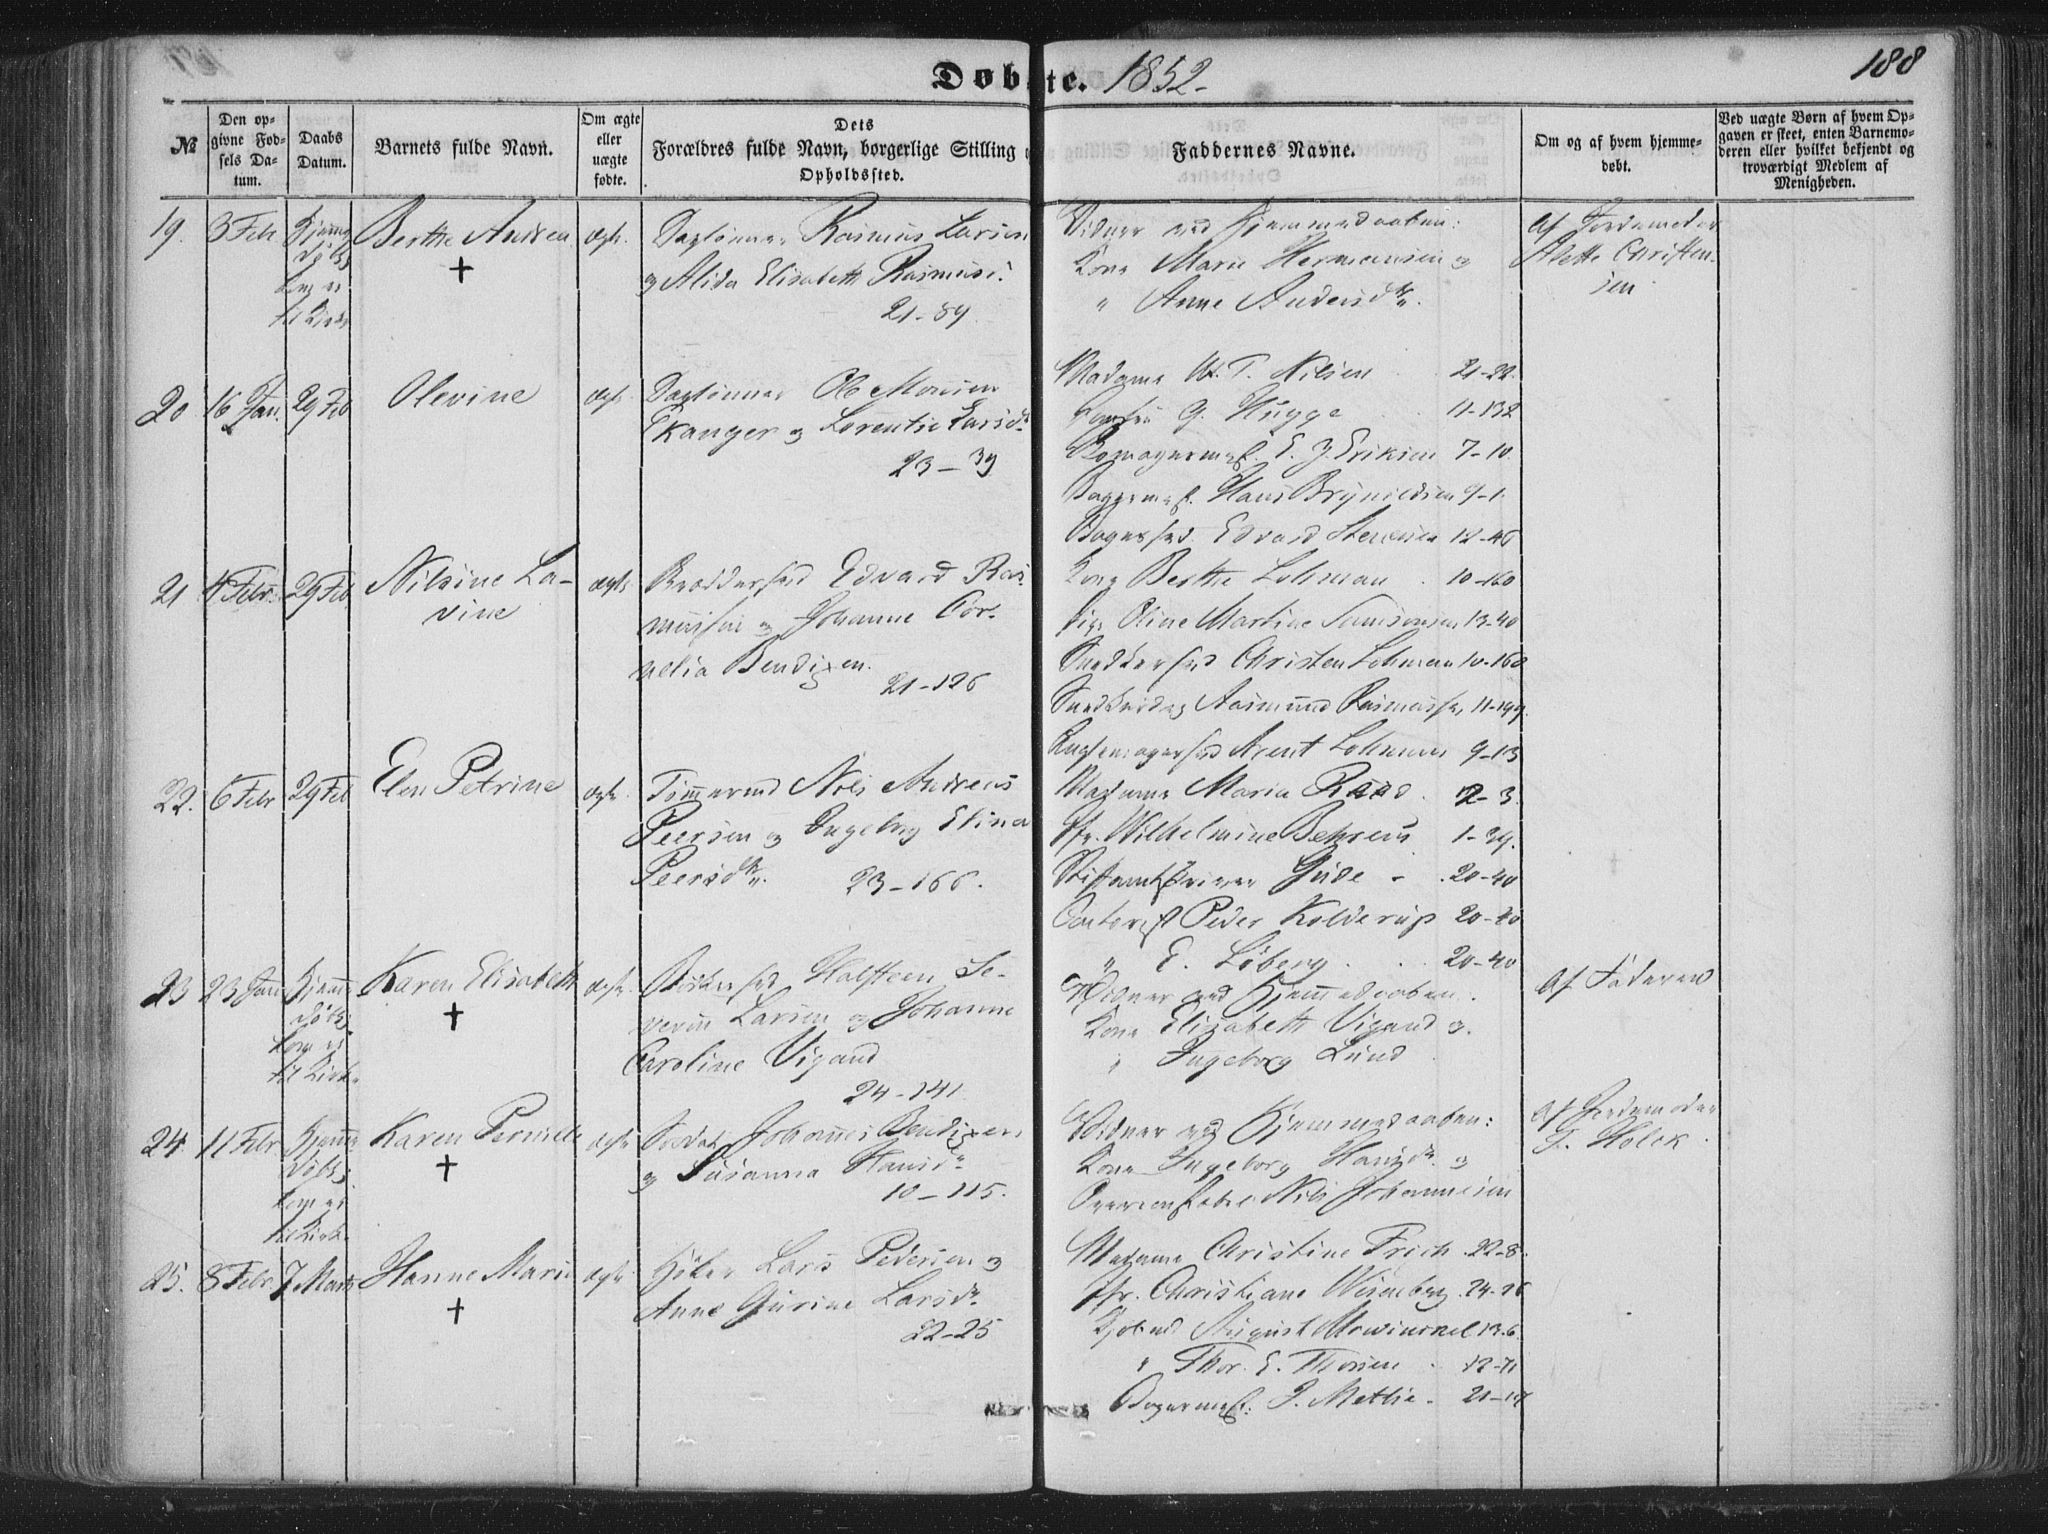 Døbte. 1852.
188
№
Den op-
givne Fød-
sels Da-
tum.
Daabs
Datum.
Barnets fulde Navn.
Om ægte
eller
uægte
fødte.
Dets
Forældres fulde Navn, borgerlige Stilling
Opholdssted.
Faddernes Navne.
Om og af hvem hjemme-
døbt.
Ved uægte Børn af hvem Op-
gaven er skeet, enten Barnemo-
deren eller hvilket bekjendt og
troværdigt Medlem af
Menigheden.
19. 3 Feb Hjemme
døbt
kom ei
til Kirke
Berthe Andrea
✝
ægte.
Daglønner Rasmus Larsen
og Alida Elisabeth Rasmus
21-89
Vidner ved Hjemmedaaben:
Kone Marie Hermansen og
" Anne Andersdtr.
Af Jordemoder
Alette Christen-
sen
20 16 Jan. 29 Feb
Olevine
ægte
Daglønner Ole Monsen
Ekanger og Lorentse Larsdr
23-39
Madame W. T. Nilsen 21-22.
G. Hugge 11-132
E. J. Eriksen 7-10.
Bagermest. Hans Brynildsen 9-1.
Bagersvd. Edvard Steensen 12-46
21 4 Febr. 29 Feb
Nilsine La-
vine
ægte
Edvard Ras-
mussen og Johanne Cor-
nelia Bendixen.
21-126
Kone Berthe Lohman 10-160
Pige Oline Martine Samsonsen 13-40
Snedkersvd Christen Lohman 10-160
Aasmund Rasmussen 11-199.
Arent Lohman 9-13
22. 6 Febr 29 Feb
Elen Petrine
ægte.
Tømmermd Nils Andreas
Peersen og Ingeborg Stina
Peersdtr.
23-166.
Madame Maria Raad 2-3.
Jfr. Wilhelmine Behrens 1-39.
Gude 20-40
Contorist Peder Kolderup 20-40
" E. Løberg 20-40
23 23 Jan Hjemme
døbt,
kom ei
til Kirke
Karen Elisabeth
✝
ægte.
Halfsteen Se-
verin Larsen og Johanne
Caroline Vigand
24-141
Vidner ved Hjemmedaaben.
Kone Elisabeth Vigand og
" Ingeborg Lund
Af Faderen
24. 11 Febr Hjemme
døbt,
kom ei
til Kirke
Karen Pernille
✝
ægte
Soldat Johannes Bendixen
og Susanna Hansdr
10-115.
Vidner ved Hjemmedaaben:
Kone Ingeborg Hansdr. og
Nils Johannesen
Af Jordemoder
F. Holck
25. 8 Febr. 7 Marts
Hanne Marie
✝
ægte
Høker Lars Pedersen og
Anne Gurine Larsdr.
22-25
Madame Christine Frich 22-8.
Jfr. Christiane Wisneberg 24-26
August Mowinckel 13-6.
" Thor. E. Thorsen 12-71
Bagermest. J. Mæthie 21-14